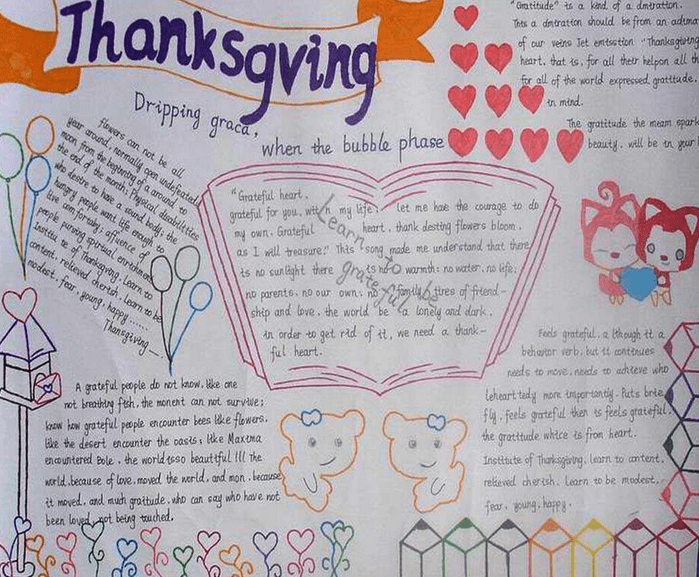 Thanksgving
Dripping graca,
when the bubble phase
"Gratitude" is a kind of a dmtration.
This a dmtration should be from an
of our veins Jet emtsstion "Thanksgiving
heart, that is, for all their helpon all th
for all of the world expressed gratitude,
in mind.
The gratitude the meam spark
beauty. will be in year
flowers can not be all
year around, normally open undefeated,
moon from the beginning of a around to
the end of the month; Physical disabilities
who desire to have a sound body; the
hungry people want life enough to
live comfortably; affluence of
people pursing spiritual enrichment
Institu te of Thanksgiving, learn to
content, relieved cherish, learn to be
modest, fear, young, happy......
Thanksgiving......
"Grateful heart,
grateful for you, with n my life, let me hae the courage to do
my own. Grateful heart, thank desting flowers bloom,
as I will treasure." This song made me understand that there
is no sunlight there is no warmth; no water, no life;
no parents, no our own; no family, tires of friend-
ship and love, the world be a lonely and dark,
in order to get rid of it, we need a thank-
ful heart.
Learn to be grateful
A grateful people do not know, like one
not breathing fish, the monent can not survive;
know how grateful people encounter bees like flowers,
like the desert encounter the oasts, like Maxima
encountered Bole, the world isso beautiful !!! the
world, because of love, moved the world, and mon, because
it moved, and much graitude, who can say who have not
been loved, not being touched,
Feels grateful, a lthough it a
behavior verb, but it continues
needs to move, needs to achteve who
Leheart tedly more importantly. Puts brie
fly, feels grateful then is feels grateful,
the gratitude whtce is from heart.
Institute of Thanksgiving, learn to content,
relieved cherish. Learn to be modest,
fear, young, happy.